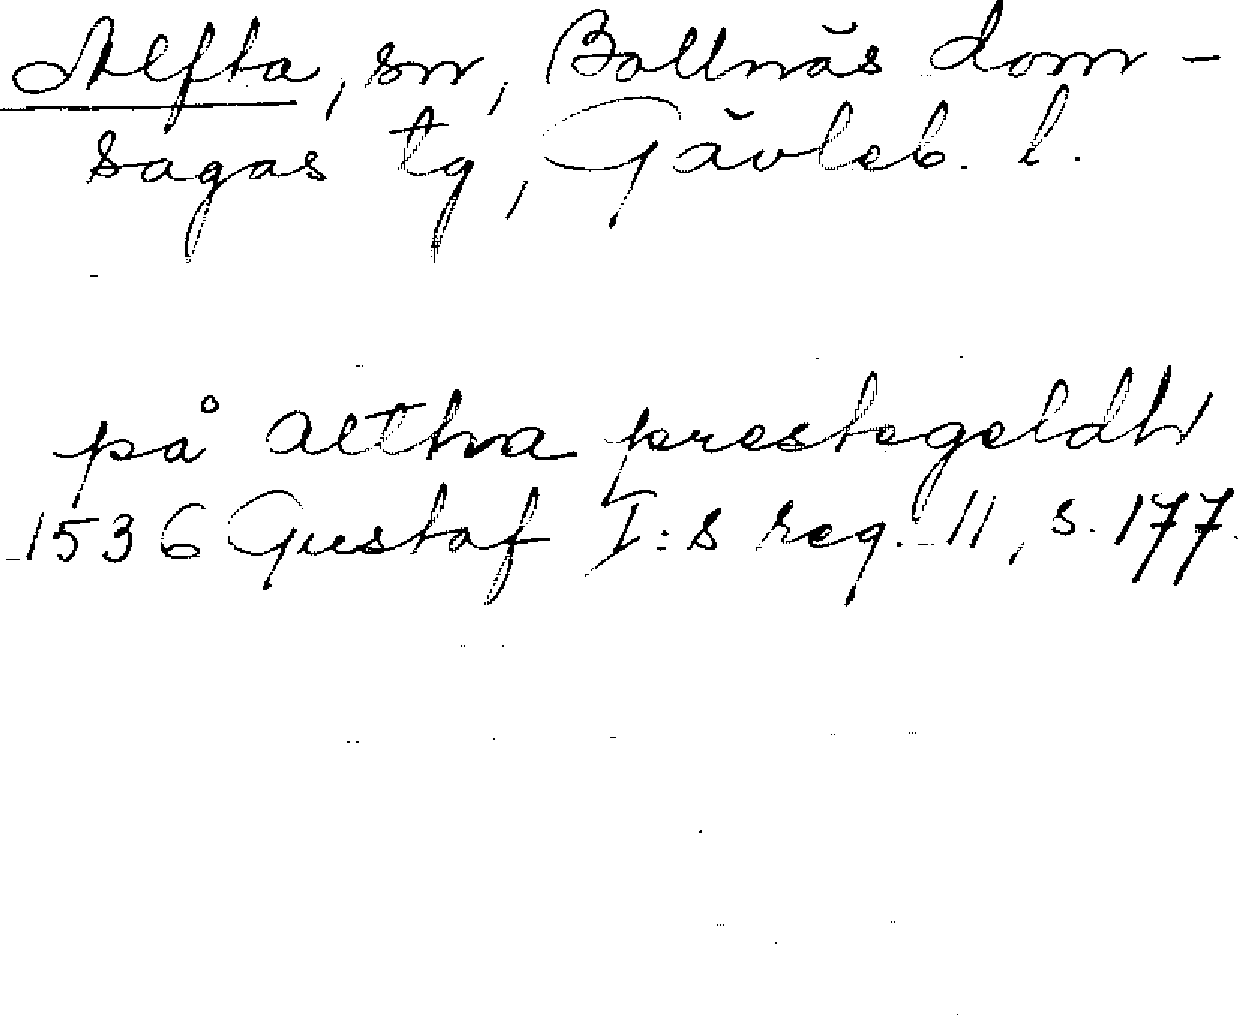 Alfta, sn, Bollnäs dom-
sagas tg, Gävleb. l.
på althva prestegeldh
1536 Gustaf I:s reg. 11, s. 177.